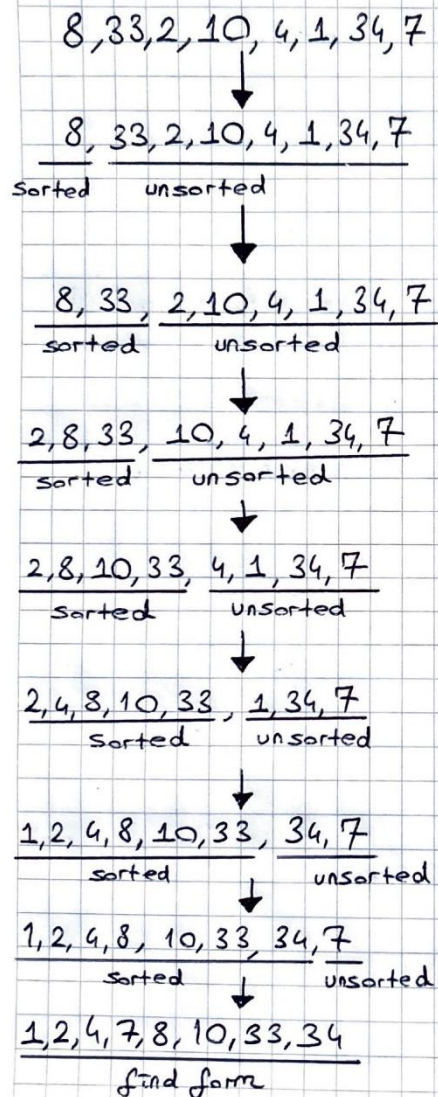 8,33,2,10,4,1,34,7
8, 33,2,10,4,1,34,7
sorted unsorted
8, 33, 2,10,4,1,34,7
sorted unsorted
2,8,33, 10,4,1,34,7
sorted unsorted
2,8,10,33, 4,1,34,7
sorted unsorted
2,4,8,10,33, 1,34,7
sorted unsorted
1,2,4,8,10,33, 34,7
sorted unsorted
1,2,4,8,10,33,34,7
sorted unsorted
1,2,4,7,8,10,33,34
find form